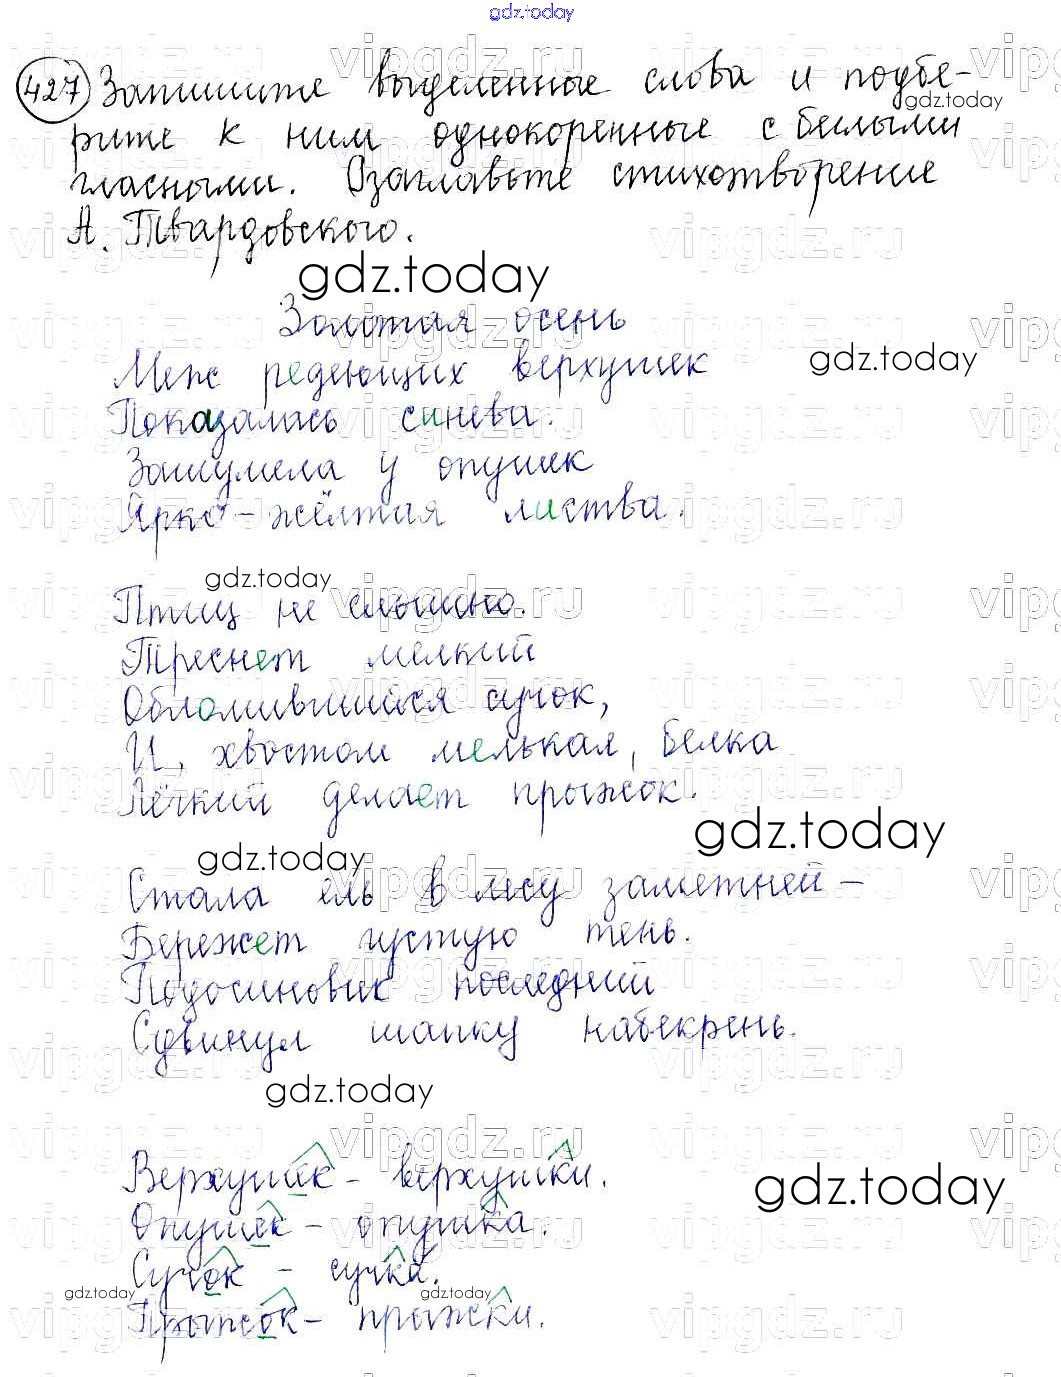 gdz.today
427 Запишите выделенные слова и подбе-
gdz.today
рите к ним однокоренные с беглыми
гласными. Озаглавьте стихотворение
А. Твардовского.
gdz.today
Золотая осень
gdz.today
Меж редеющих верхушек
Показалась синева.
Зашумела у опушек
Ярко-жёлтая листва.
gdz.today
Птиц не слышно.
Треснет мелкий
Обломившийся сучок,
И, хвостом мелькая, белка
Лёгкий делает прыжок.
gdz.today
gdz.today
Стала ель в лесу заметней –
Бережет густую тень.
Подосиновик последний
Сдвинул шапку набекрень.
gdz.today
Верхушек – верхушки.
gdz.today
Опушек – опушка.
Сучок – сучка.
gdz.today gdz.today
Прыжок – прыжки.
vipgdz.ru